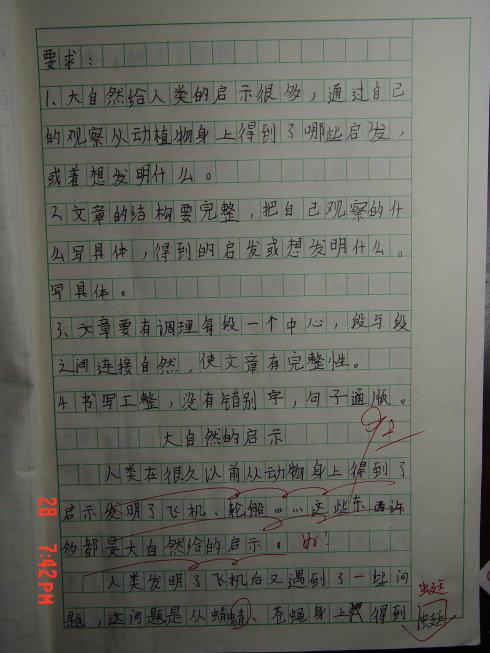 要求：
1、大自然给人类的启示很多，通过自己
的观察从动植物身上得到了哪些启发，
或着想发明什么。
2、文章的结构要完整，把自己观察的什
么写具体，得到的启发或想发明什么。
写具体。
3、文章要有调理每段一个中心，段与段
之间连接自然，使文章有完整性。
4 书写工整，没有错别字，句子通顺。
大自然的启示
人类在很久以前从动物身上得到了
启示发明了飞机、轮船……这些东西许
多都是大自然给的启示。好！
人类发明了飞机后又遇到了一些问
题，这问题是从蜻蜻、苍蝇身上 得到
蜓
蜓
28 7:42PM